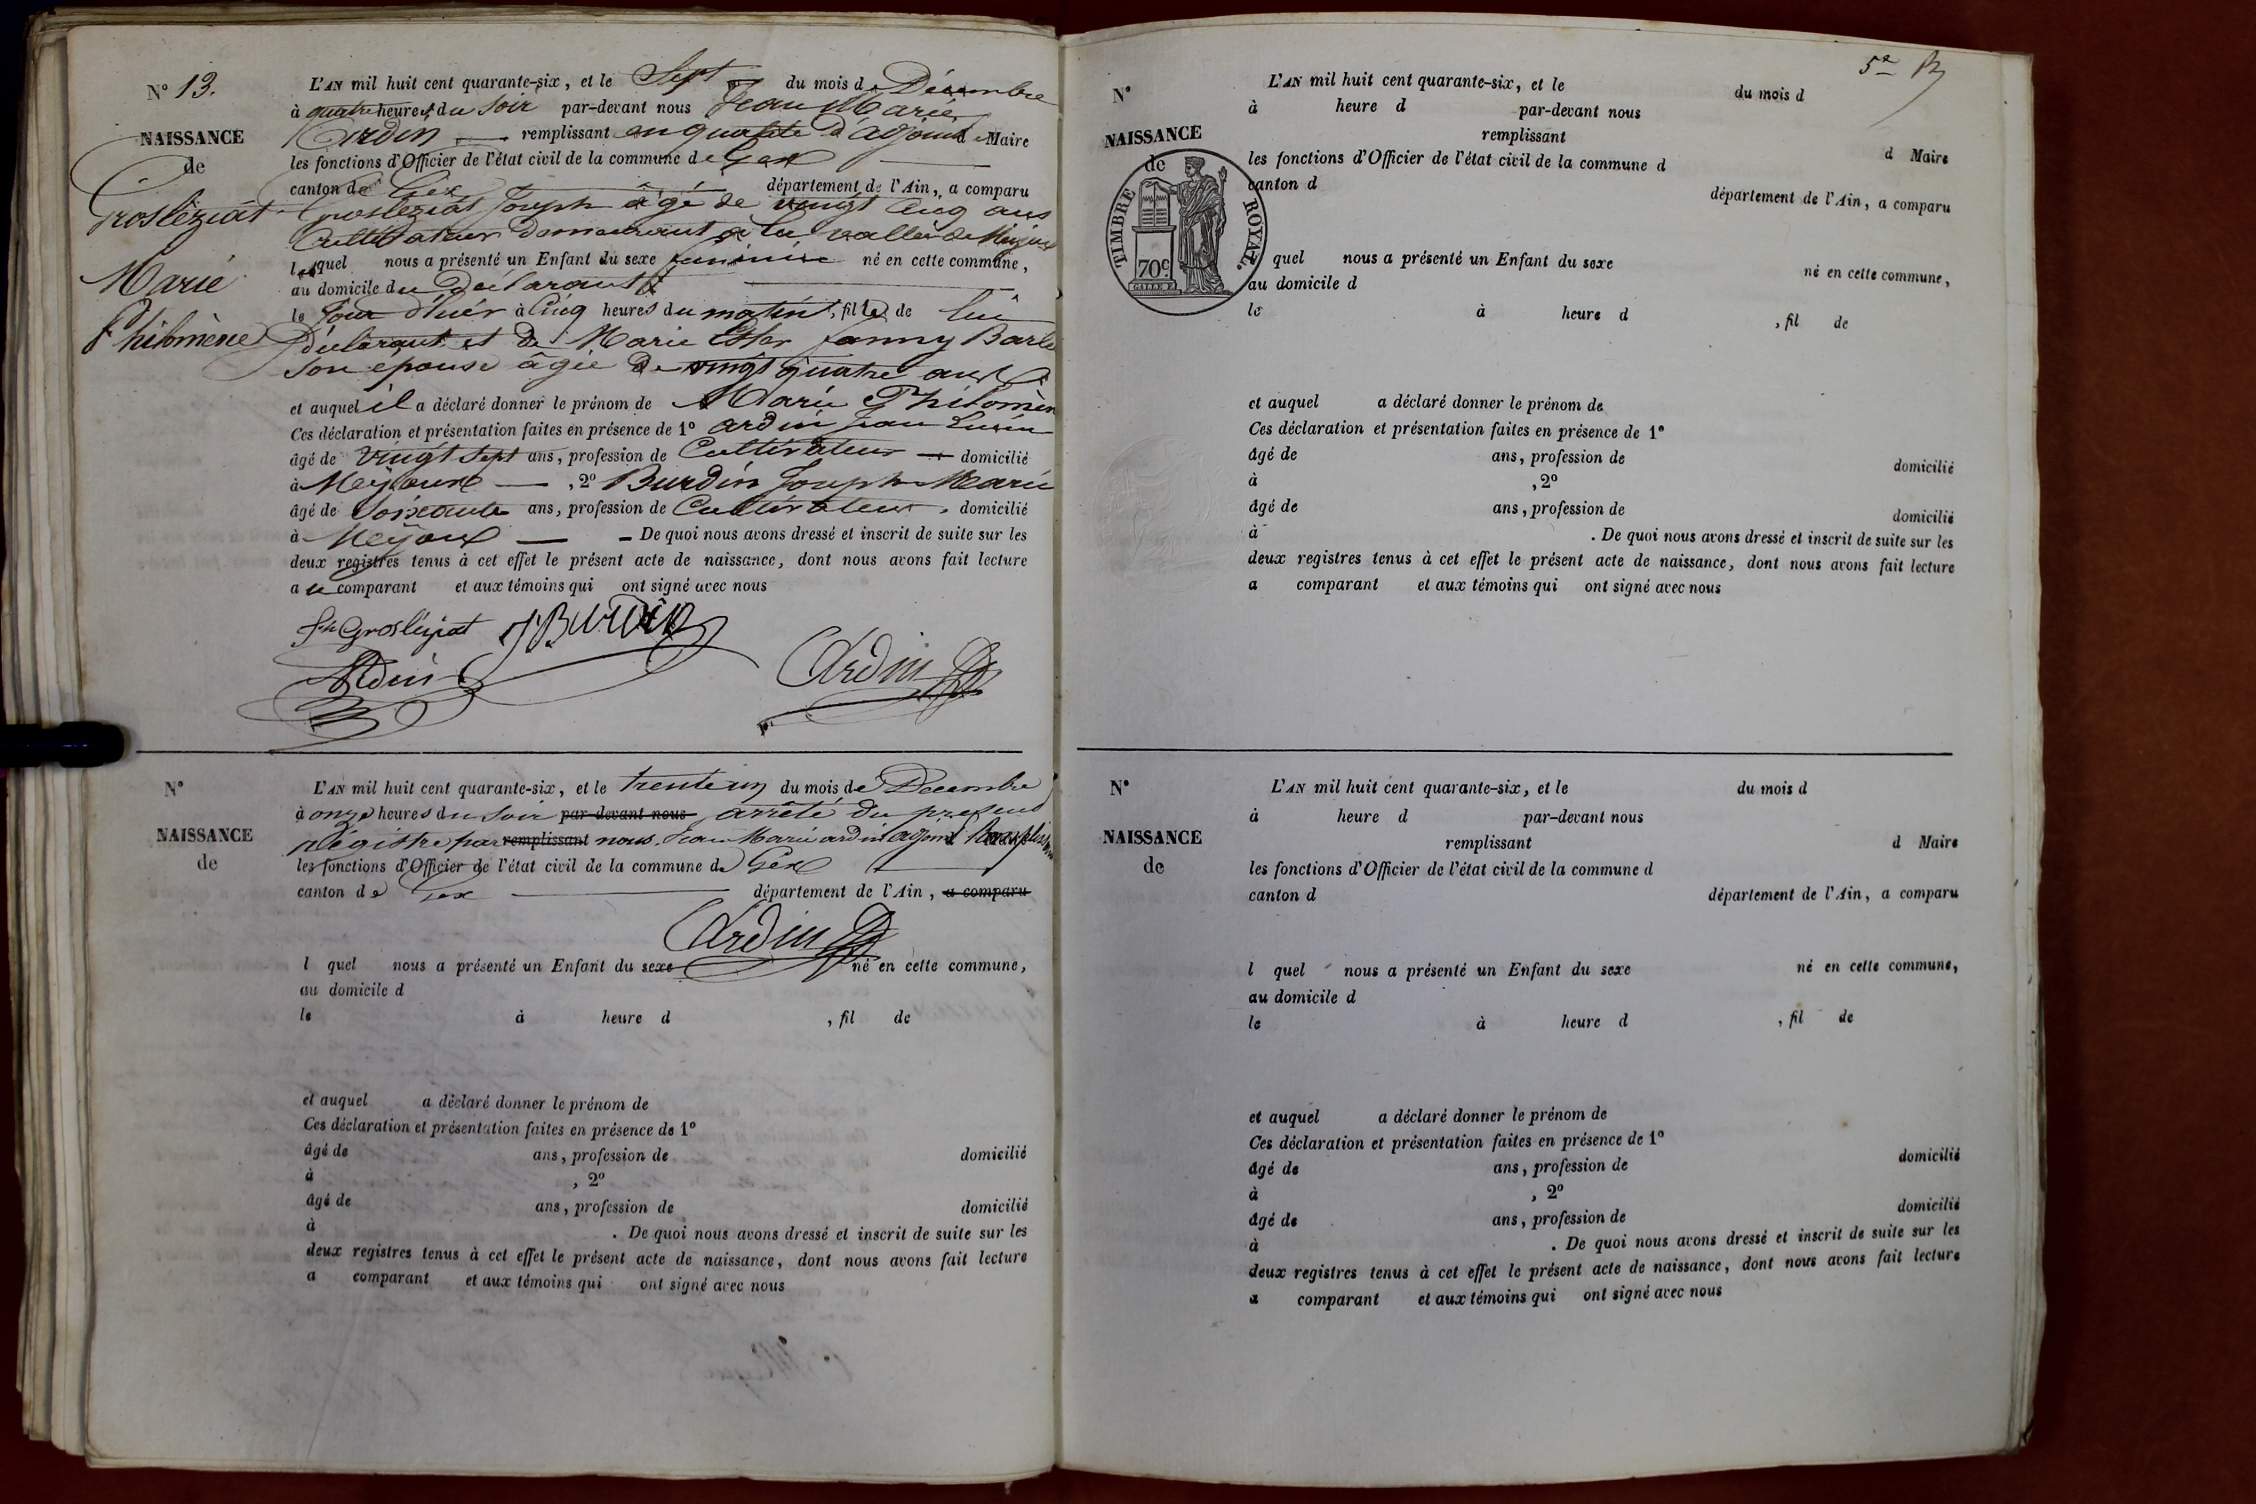 N° 13.
NAISSANCE
de
Grosléziat
Marie
Philomène
L'AN mil huit cent quarante-six, et le Sept du mois de Décembre
à quatre heures du Soir par-devant nous Jean Marie
Ardin remplissant en qualité d'adjoint Maire
les fonctions d'Officier de l'état civil de la commune de Gex
canton de Gex département de l'Ain, a comparu
Grosléziat Joseph âgé de vingt Cinq ans
Cultivateur demeurant à la vallée de Mijoux
lequel nous a présenté un Enfant du sexe féminin né en cette commune,
au domicile du Déclarant
le Jour d'hier à Cinq heures du matin, fille de lui
déclarant et De Marie Ester Fanny Barbe
Son épouse âgée De vingt quatre ans
et auquel il a déclaré donner le prénom de Marie Philomène
Ces déclaration et présentation faites en présence de 1° ardin Jean
âgé de vingt Sept ans, profession de Cultivateur domicilié
à Meyjoux, 2° Burdin Joseph Marie
âgé de Soixante ans, profession de Cultivateur, domicilié
à Meyjoux De quoi nous avons dressé et inscrit de suite sur les
deux registres tenus à cet effet le présent acte de naissance, dont nous avons fait lecture
au comparant et aux témoins qui ont signé avec nous
Jh Grosléziat JBurdin
Ardin
Ardin
N°
NAISSANCE
de
L'AN mil huit cent quarante-six, et le trente un du mois de Decembre
à onze heures du Soir par-devant nous arrêté du présent
régistre par remplissant nous. Jean Marie ardin adjoint remplissant
les fonctions d'Officier de l'état civil de la commune de Gex
canton de Gex département de l'Ain, a comparu
Ardin
l quel nous a présenté un Enfant du sexe né en cette commune,
au domicile d
le à heure d , fil de
et auquel a déclaré donner le prénom de
Ces déclaration et présentation faites en présence de 1°
âgé de ans, profession de domicilié
à , 2°
âgé de ans, profession de domicilié
à . De quoi nous avons dressé et inscrit de suite sur les
deux registres tenus à cet effet le présent acte de naissance, dont nous avons fait lecture
a comparant et aux témoins qui ont signé avec nous
5e
N°
NAISSANCE
de
TIMBRE ROYAL.
70c
L'AN mil huit cent quarante-six, et le du mois d
à heure d par-devant nous
remplissant d Maire
les fonctions d'Officier de l'état civil de la commune d
canton d département de l'Ain, a comparu
quel nous a présenté un Enfant du sexe né en cette commune,
au domicile d
le à heure d , fil de
et auquel a déclaré donner le prénom de
Ces déclaration et présentation faites en présence de 1°
âgé de ans, profession de domicilié
à , 2°
âgé de ans, profession de domicilié
à . De quoi nous avons dressé et inscrit de suite sur les
deux registres tenus à cet effet le présent acte de naissance, dont nous avons fait lecture
a comparant et aux témoins qui ont signé avec nous
N°
NAISSANCE
de
L'AN mil huit cent quarante-six, et le du mois d
à heure d par-devant nous
remplissant d Maire
les fonctions d'Officier de l'état civil de la commune d
canton d département de l'Ain, a comparu
l quel nous a présenté un Enfant du sexe né en cette commune,
au domicile d
le à heure d , fil de
et auquel a déclaré donner le prénom de
Ces déclaration et présentation faites en présence de 1°
âgé de ans, profession de domicilié
à , 2°
âgé de ans, profession de domicilié
à . De quoi nous avons dressé et inscrit de suite sur les
deux registres tenus à cet effet le présent acte de naissance, dont nous avons fait lecture
a comparant et aux témoins qui ont signé avec nous